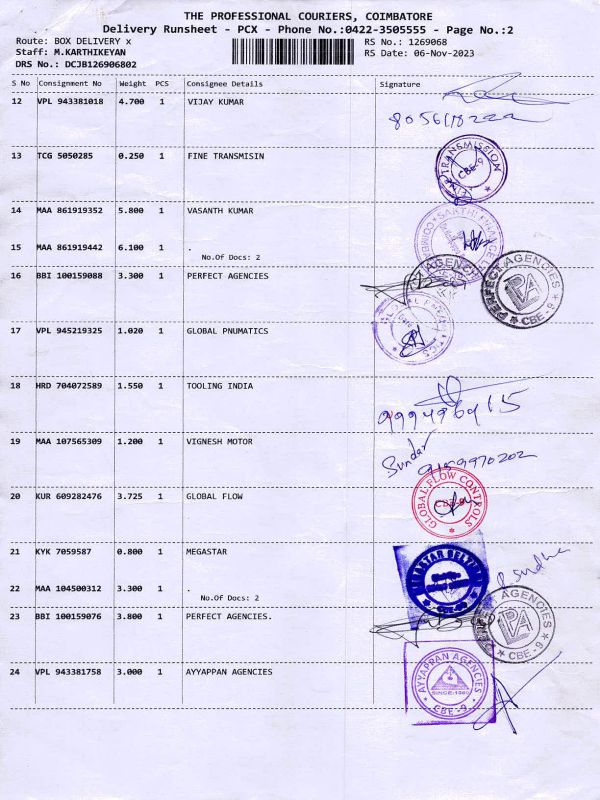 THE PROFESSIONAL COURIERS, COIMBATORE
Delivery Runsheet - PCX - Phone No.:0422-3505555 - Page No.:2
Route: BOX DELIVERY x
RS No.: 1269068
Staff: M.KARTHIKEYAN
RS Date: 06-Nov-2023
DRS No.: DCJB126906802
S No Consignment No Weight PCS Consignee Details Signature
12 VPL 943381018 4.700 1 VIJAY KUMAR
13 TCG 5050285 0.250 1 FINE TRANSMISIN
FINE TRANSMISSION
CBE-9
14 MAA 861919352 5.800 1 VASANTH KUMAR
15 MAA 861919442 6.100 1 .
No.Of Docs: 2
16 BBI 100159088 3.300 1 PERFECT AGENCIES
PERFECT AGENCIES
CBE-9
17 VPL 945219325 1.020 1 GLOBAL PNUMATICS
18 HRD 704072589 1.550 1 TOOLING INDIA
19 MAA 107565309 1.200 1 VIGNESH MOTOR
Sundar
9159970202
20 KUR 609282476 3.725 1 GLOBAL FLOW
GLOBAL FLOW CONTROLS
21 KYK 7059587 0.800 1 MEGASTAR
22 MAA 104500312 3.300 1 .
No.Of Docs: 2
23 BBI 100159076 3.800 1 PERFECT AGENCIES.
PERFECT AGENCIES
CBE-9
24 VPL 943381758 3.000 1 AYYAPPAN AGENCIES
AYYAPPAN AGENCIES
CBE-9